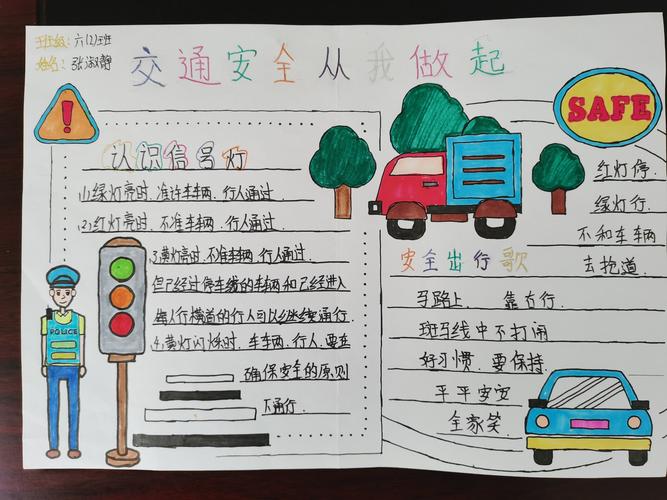 班级：六(2)班
姓名：张淑静
交通安全从我做起
SAFE
认识信号灯
1.绿灯亮时，准许车辆、行人通过
2.红灯亮时，不准车辆、行人通过
3.黄灯亮时，不准车辆、行人通过
但已经过停车线的车辆和已经进入
人行横道的行人可以继续通行
4.黄灯闪烁时，车辆、行人，要在
确保安全的原则
下通行.
POLICE
红灯停
绿灯行.
不和车辆
去抢道
安全出行歌
马路上，靠右行.
斑马线中不打闹
好习惯，要保持.
平平安安
全家笑.